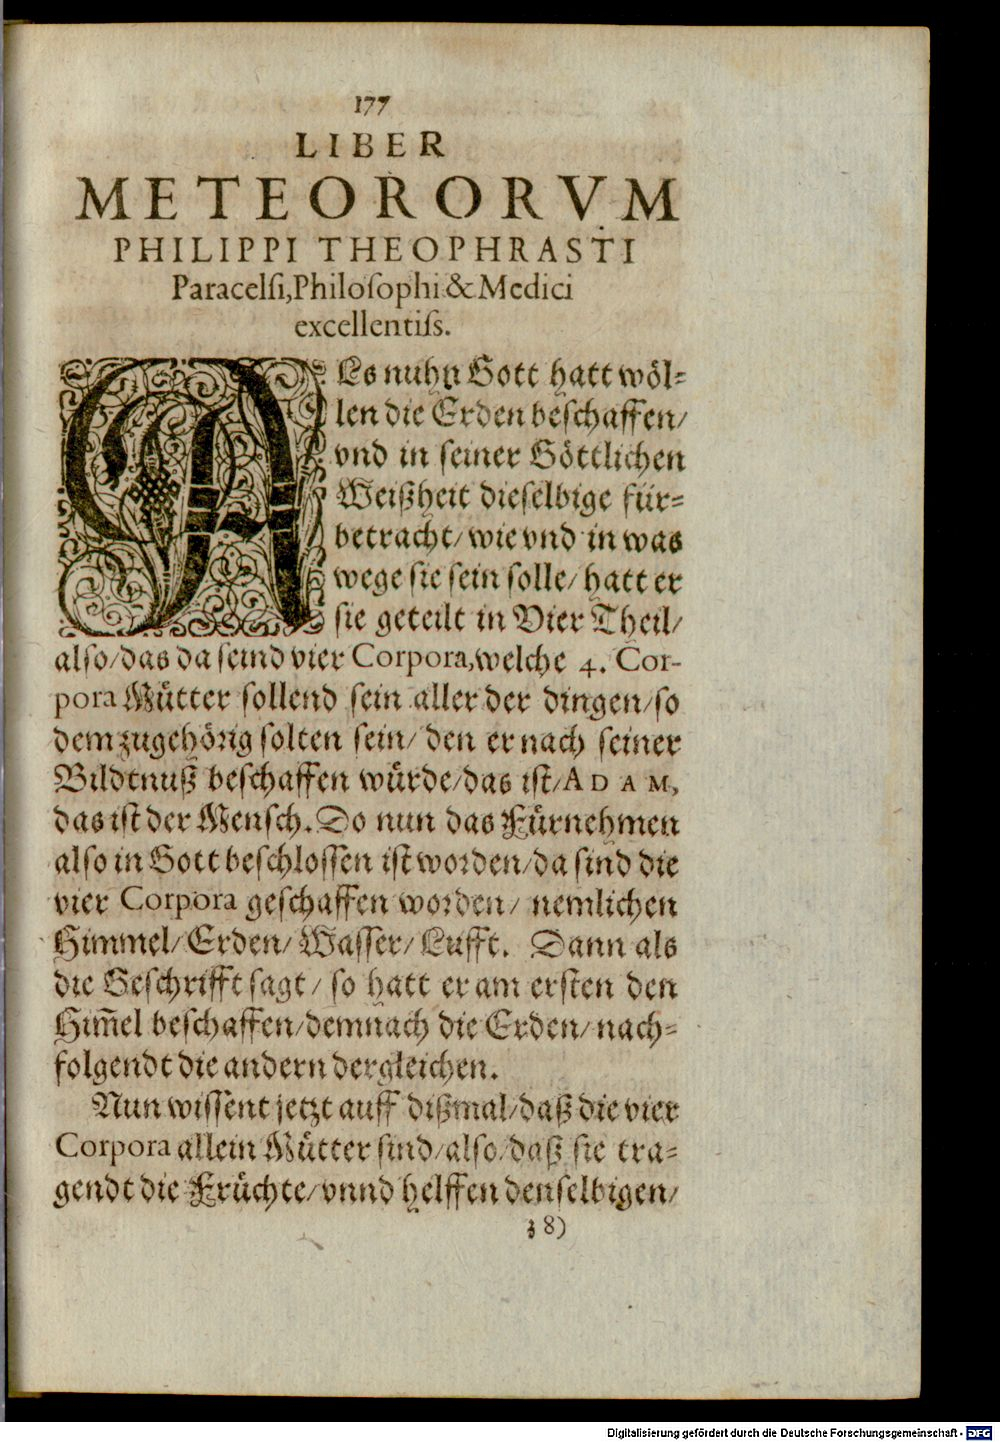 177
LIBER
METEORORVM
PHILIPPI THEOPHRASTI
Paracelſi, Philoſophi & Medici
excellentiſs.
ALs nuhn Gott hatt wöl-
len die Erden beſchaffen/
vnd in ſeiner Göttlichen
Weißheit dieſelbige für-
betracht/ wie vnd in was
wege ſie ſein ſolle/ hatt er
ſie geteilt in Vier Theil/
alſo/ das da ſeind vier Corpora, welche 4. Cor-
pora Mütter ſollend ſein aller der dingen/ ſo
dem zugehörig ſolten ſein/ den er nach ſeiner
Bildtnuß beſchaffen würde/ das iſt/ ADAM,
das iſt der Menſch. Do nun das Fürnehmen
alſo in Gott beſchloſſen iſt worden/ da ſind die
vier Corpora geſchaffen worden/ nemlichen
Himmel/ Erden/ Waſſer/ Lufft. Dann als
die Geſchrifft ſagt/ ſo hatt er am erſten den
Him̃el beſchaffen/ demnach die Erden/ nach-
folgendt die andern dergleichen.
Nun wiſſent jetzt auff dißmal/ daß die vier
Corpora allein Mütter ſind/ alſo/ daß ſie tra-
gendt die Früchte/ vnnd helffen denſelbigen/
38)
Digitalisierung gefördert durch die Deutsche Forschungsgemeinschaft - DFG